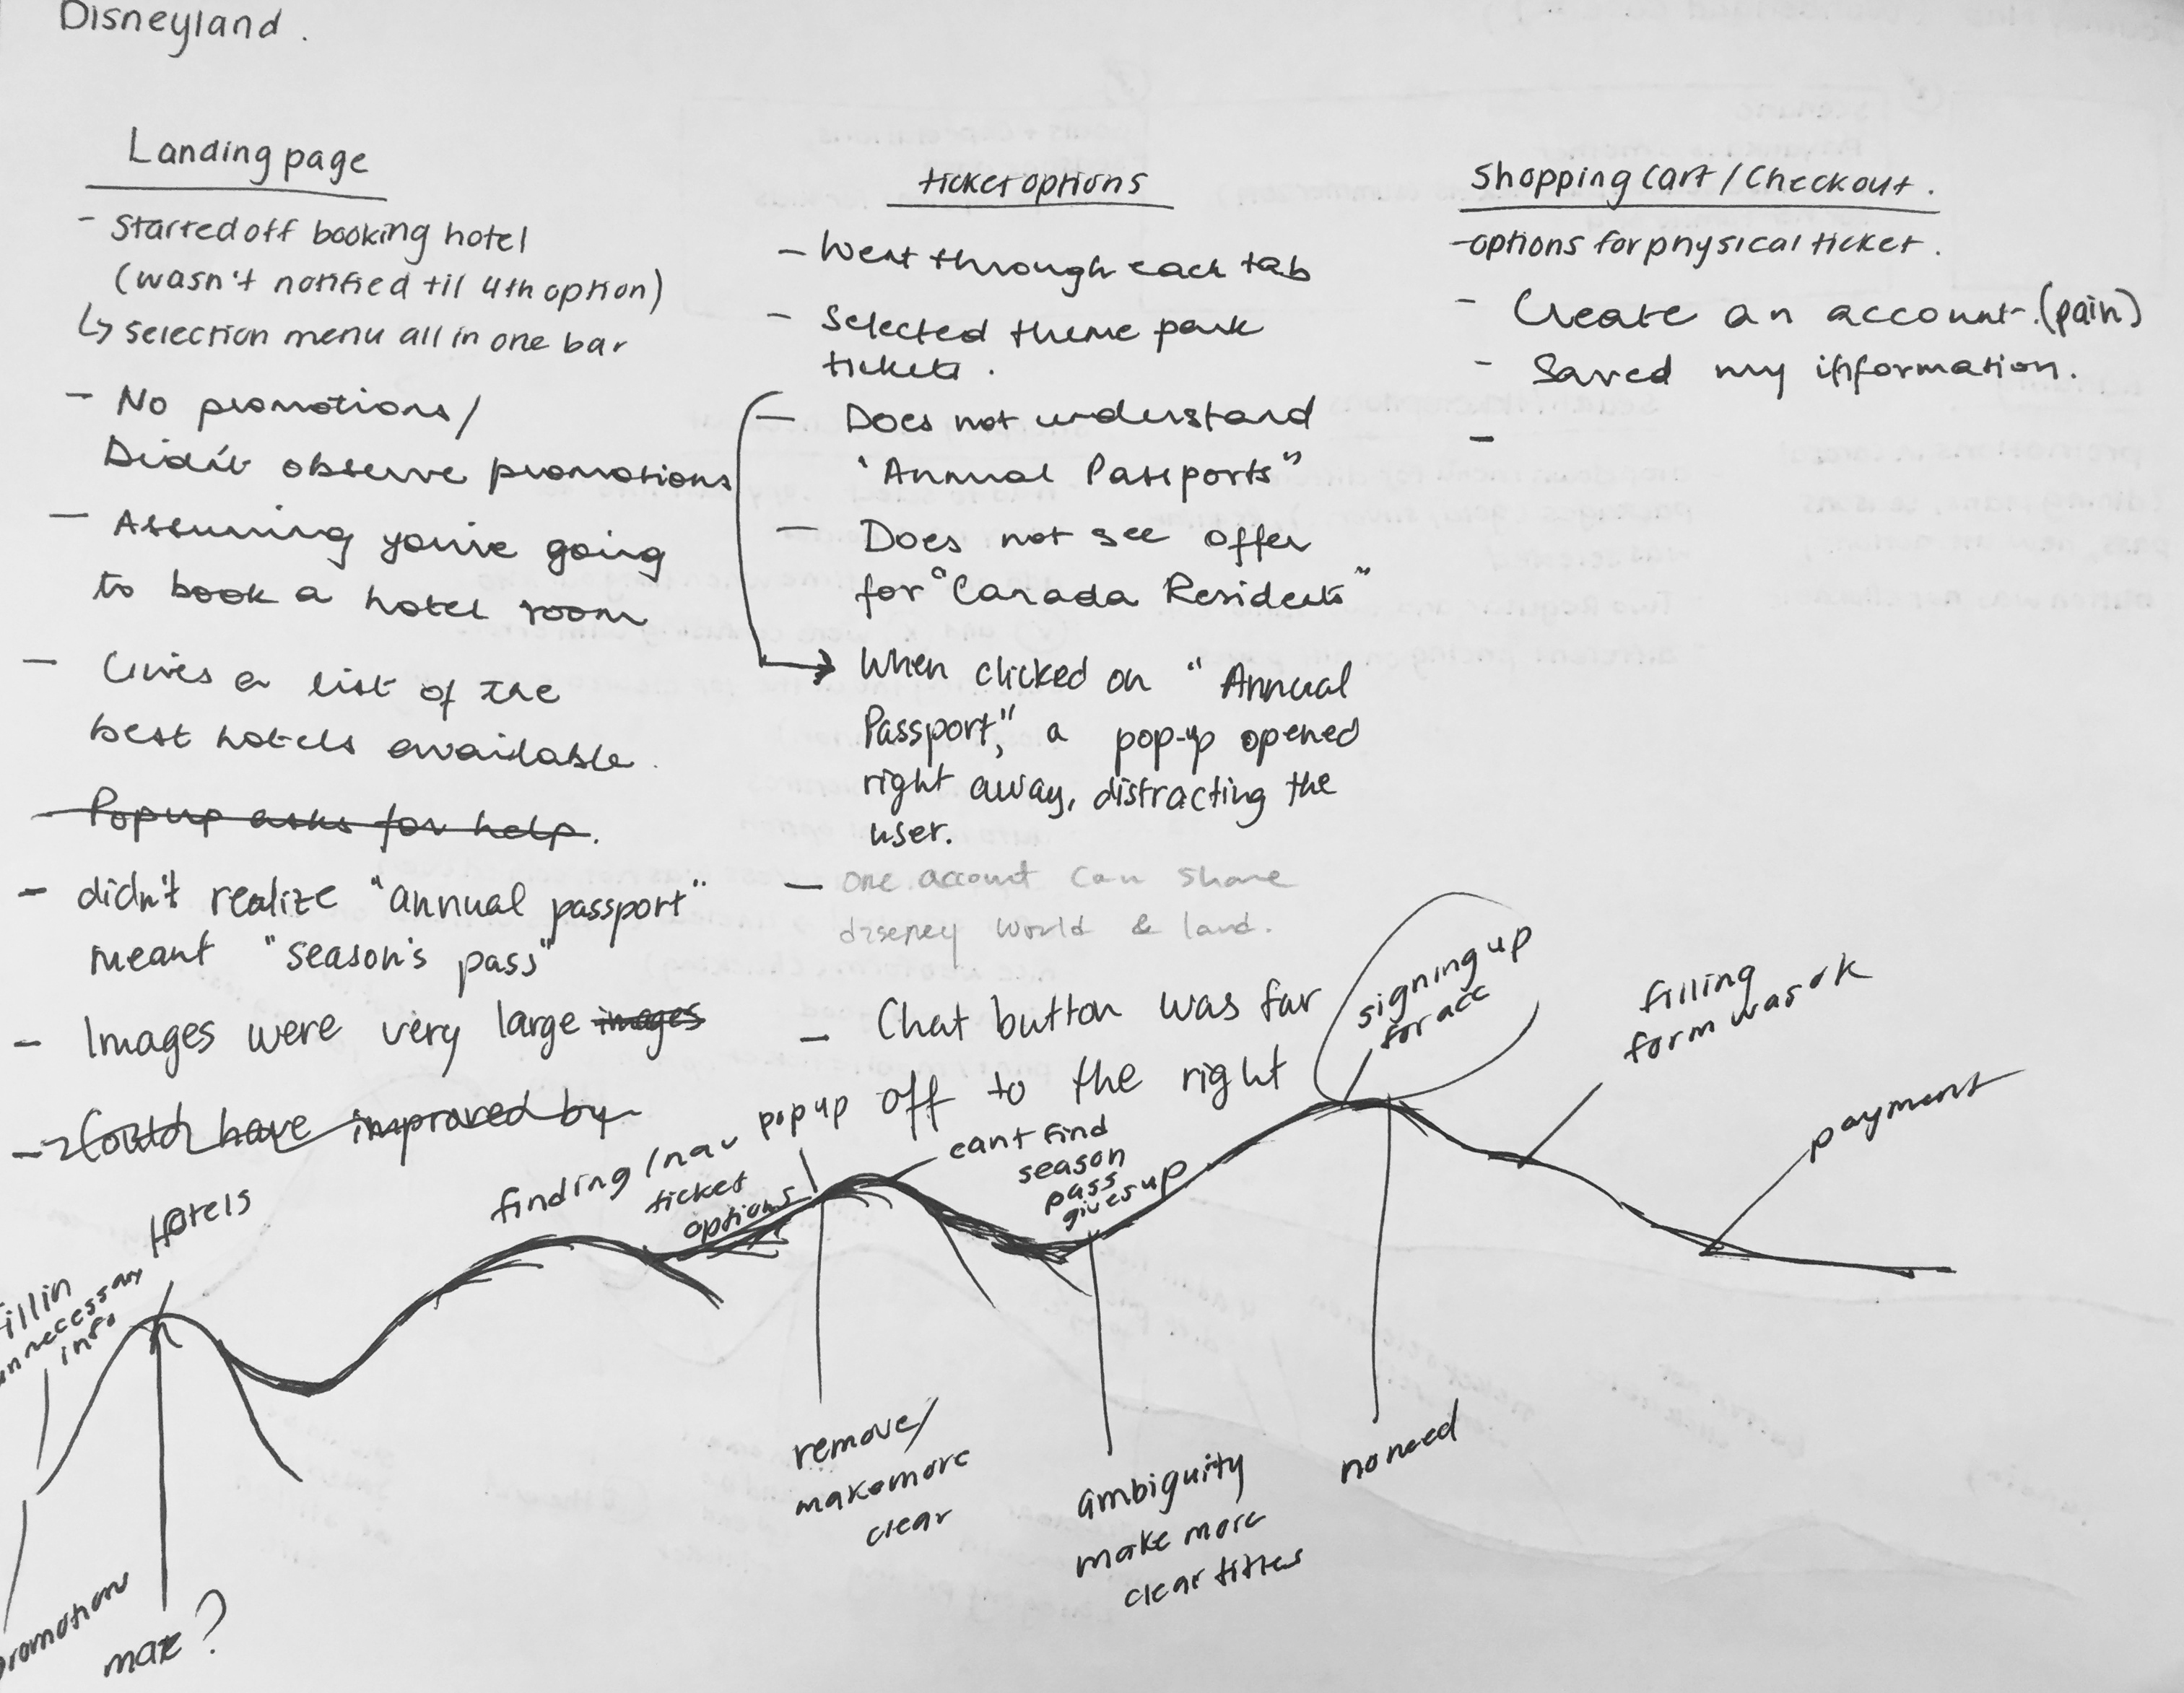 Disneyland.
Landing page
- Started off booking hotel
(wasn't notified til 4th option)
↳ selection menu all in one bar
- No promotions/
Didn't observe promotions
- Assuming you're going
to book a hotel room
- Gives a list of the
best hotels available.
- Popup asks for help.
- didn't realize "annual passport"
meant "season's pass"
- Images were very large images
- Could have improved by
ticket options
- Went through each tab
- Selected theme park
tickets.
- Does not understand
'Annual Passports"
- Does not see offer
for "Canada Residents"
→ When clicked on "Annual
Passport," a pop-up opened
right away, distracting the
user.
- one account can share
disney world & land.
- Chat button was far
off to the right
Shopping Cart / Checkout.
- options for physical ticket.
- Create an account. (pain)
- Saved my information.
-
info
Hotels
finding / nav
ticket
options
popup
cant find
season
pass
gives up
signing up
for acc
filling
form was ok
payment
remove/
make more
clear
ambiguity
make more
clear titles
no need